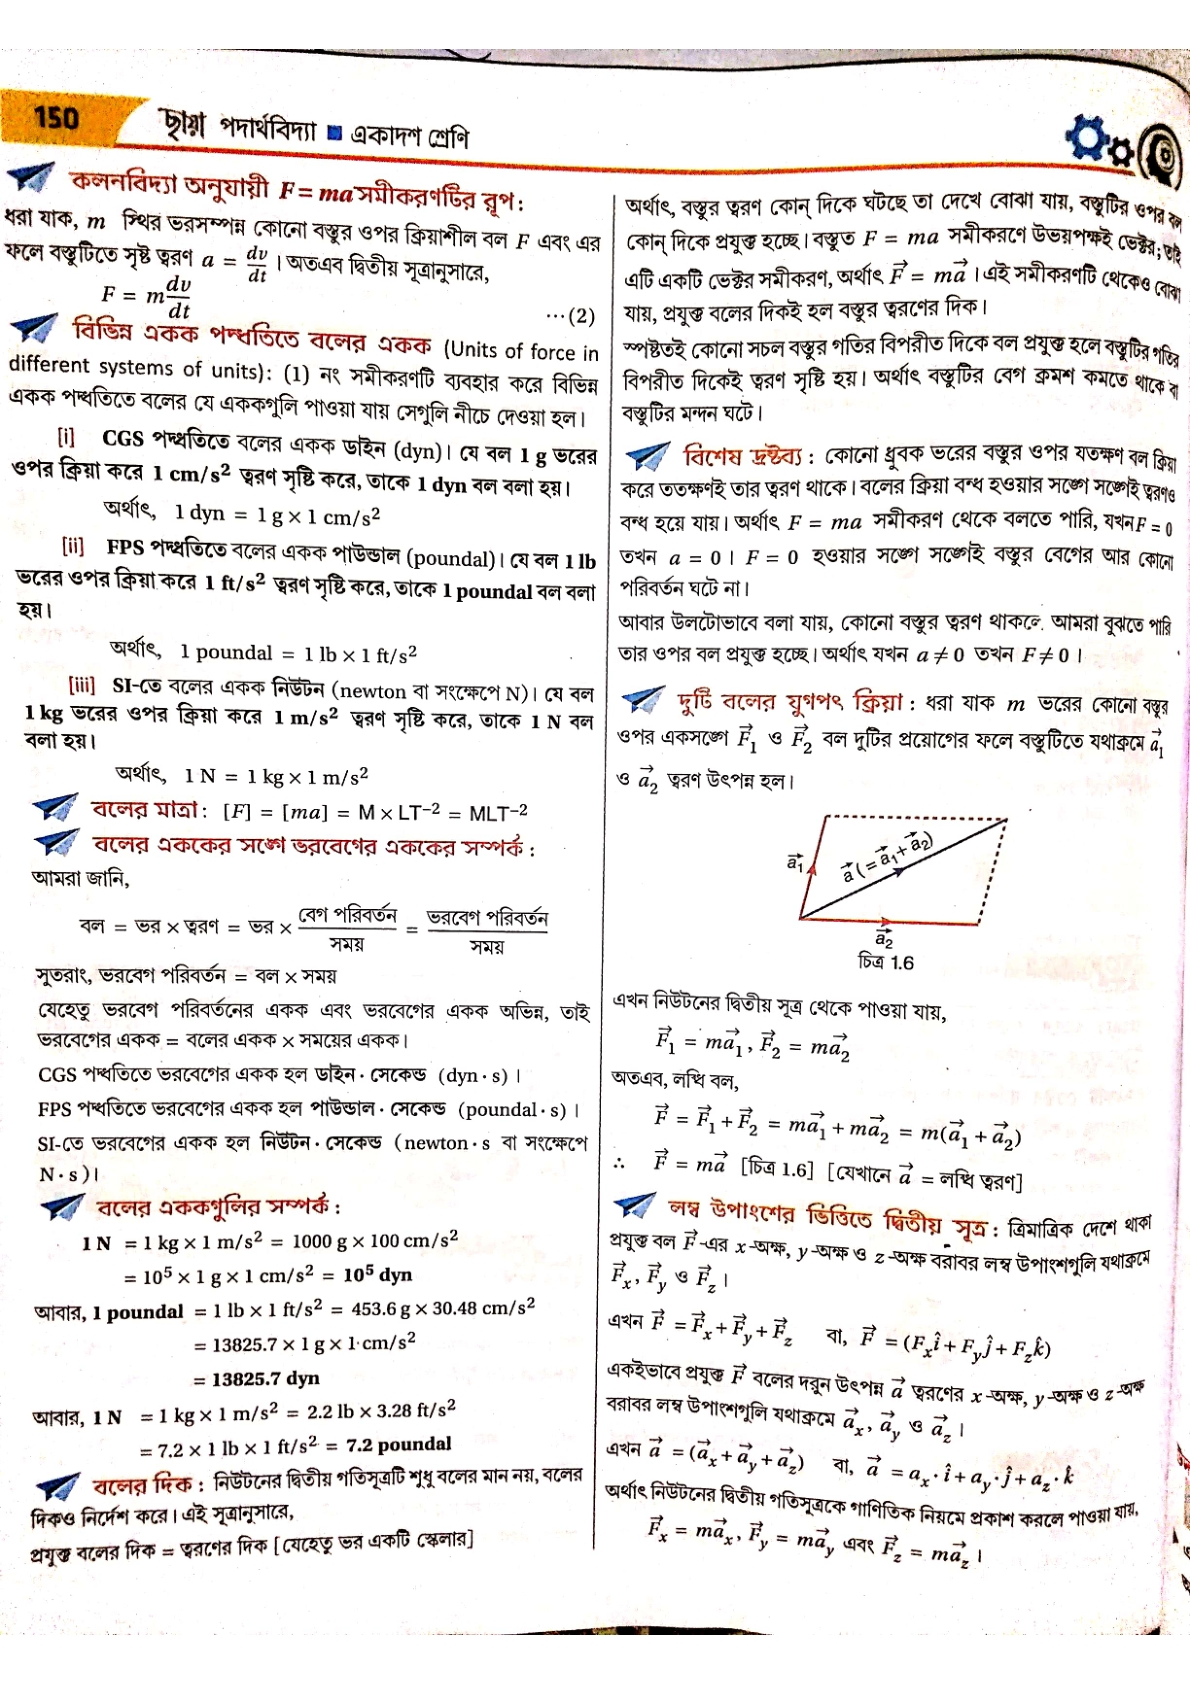 150 ছায়া পদার্থবিদ্যা ■ একাদশ শ্রেণি
কলনবিদ্যা অনুযায়ী F = ma সমীকরণটির রূপ :
ধরা যাক, m স্থির ভরসম্পন্ন কোনো বস্তুর ওপর ক্রিয়াশীল বল F এবং এর
ফলে বস্তুটিতে সৃষ্ট ত্বরণ a = dv/dt । অতএব দ্বিতীয় সূত্রানুসারে,
F = m dv/dt ···(2)
বিভিন্ন একক পদ্ধতিতে বলের একক (Units of force in
different systems of units): (1) নং সমীকরণটি ব্যবহার করে বিভিন্ন
একক পদ্ধতিতে বলের যে এককগুলি পাওয়া যায় সেগুলি নীচে দেওয়া হল।
[i] CGS পদ্ধতিতে বলের একক ডাইন (dyn)। যে বল 1 g ভরের
ওপর ক্রিয়া করে 1 cm/s² ত্বরণ সৃষ্টি করে, তাকে 1 dyn বল বলা হয়।
অর্থাৎ, 1 dyn = 1 g × 1 cm/s²
[ii] FPS পদ্ধতিতে বলের একক পাউন্ডাল (poundal)। যে বল 1 lb
ভরের ওপর ক্রিয়া করে 1 ft/s² ত্বরণ সৃষ্টি করে, তাকে 1 poundal বল বলা
হয়।
অর্থাৎ, 1 poundal = 1 lb × 1 ft/s²
[iii] SI-তে বলের একক নিউটন (newton বা সংক্ষেপে N)। যে বল
1 kg ভরের ওপর ক্রিয়া করে 1 m/s² ত্বরণ সৃষ্টি করে, তাকে 1 N বল
বলা হয়।
অর্থাৎ, 1 N = 1 kg × 1 m/s²
বলের মাত্রা : [F] = [ma] = M × LT⁻² = MLT⁻²
বলের এককের সঙ্গে ভরবেগের এককের সম্পর্ক :
আমরা জানি,
বল = ভর × ত্বরণ = ভর × বেগ পরিবর্তন/সময় = ভরবেগ পরিবর্তন/সময়
সুতরাং, ভরবেগ পরিবর্তন = বল × সময়
যেহেতু ভরবেগ পরিবর্তনের একক এবং ভরবেগের একক অভিন্ন, তাই
ভরবেগের একক = বলের একক × সময়ের একক।
CGS পদ্ধতিতে ভরবেগের একক হল ডাইন · সেকেন্ড (dyn · s) ।
FPS পদ্ধতিতে ভরবেগের একক হল পাউন্ডাল · সেকেন্ড (poundal · s) ।
SI-তে ভরবেগের একক হল নিউটন · সেকেন্ড (newton · s বা সংক্ষেপে
N · s)।
বলের এককগুলির সম্পর্ক :
1 N = 1 kg × 1 m/s² = 1000 g × 100 cm/s²
= 10⁵ × 1 g × 1 cm/s² = 10⁵ dyn
আবার, 1 poundal = 1 lb × 1 ft/s² = 453.6 g × 30.48 cm/s²
= 13825.7 × 1 g × 1 cm/s²
= 13825.7 dyn
আবার, 1 N = 1 kg × 1 m/s² = 2.2 lb × 3.28 ft/s²
= 7.2 × 1 lb × 1 ft/s² = 7.2 poundal
বলের দিক : নিউটনের দ্বিতীয় গতিসূত্রটি শুধু বলের মান নয়, বলের
দিকও নির্দেশ করে। এই সূত্রানুসারে,
প্রযুক্ত বলের দিক = ত্বরণের দিক [যেহেতু ভর একটি স্কেলার]
অর্থাৎ, বস্তুর ত্বরণ কোন্ দিকে ঘটছে তা দেখে বোঝা যায়, বস্তুটির ওপর বল
কোন্ দিকে প্রযুক্ত হচ্ছে। বস্তুত F = ma সমীকরণে উভয়পক্ষই ভেক্টর; তাই
এটি একটি ভেক্টর সমীকরণ, অর্থাৎ F⃗ = ma⃗ । এই সমীকরণটি থেকেও বোঝা
যায়, প্রযুক্ত বলের দিকই হল বস্তুর ত্বরণের দিক।
স্পষ্টতই কোনো সচল বস্তুর গতির বিপরীত দিকে বল প্রযুক্ত হলে বস্তুটির গতির
বিপরীত দিকেই ত্বরণ সৃষ্টি হয়। অর্থাৎ বস্তুটির বেগ ক্রমশ কমতে থাকে বা
বস্তুটির মন্দন ঘটে।
বিশেষ দ্রষ্টব্য : কোনো ধ্রুবক ভরের বস্তুর ওপর যতক্ষণ বল ক্রিয়া
করে ততক্ষণই তার ত্বরণ থাকে। বলের ক্রিয়া বন্ধ হওয়ার সঙ্গে সঙ্গেই ত্বরণও
বন্ধ হয়ে যায়। অর্থাৎ F = ma সমীকরণ থেকে বলতে পারি, যখন F = 0
তখন a = 0 । F = 0 হওয়ার সঙ্গে সঙ্গেই বস্তুর বেগের আর কোনো
পরিবর্তন ঘটে না।
আবার উলটোভাবে বলা যায়, কোনো বস্তুর ত্বরণ থাকলে আমরা বুঝতে পারি
তার ওপর বল প্রযুক্ত হচ্ছে। অর্থাৎ যখন a ≠ 0 তখন F ≠ 0 ।
দুটি বলের যুগপৎ ক্রিয়া : ধরা যাক m ভরের কোনো বস্তুর
ওপর একসঙ্গে F⃗₁ ও F⃗₂ বল দুটির প্রয়োগের ফলে বস্তুটিতে যথাক্রমে a⃗₁
ও a⃗₂ ত্বরণ উৎপন্ন হল।
a⃗₁ a⃗ (= a⃗₁ + a⃗₂)
a⃗₂
চিত্র 1.6
এখন নিউটনের দ্বিতীয় সূত্র থেকে পাওয়া যায়,
F⃗₁ = ma⃗₁ , F⃗₂ = ma⃗₂
অতএব, লব্ধি বল,
F⃗ = F⃗₁ + F⃗₂ = ma⃗₁ + ma⃗₂ = m(a⃗₁ + a⃗₂)
∴ F⃗ = ma⃗ [চিত্র 1.6] [যেখানে a⃗ = লব্ধি ত্বরণ]
লম্ব উপাংশের ভিত্তিতে দ্বিতীয় সূত্র : ত্রিমাত্রিক দেশে থাকা
প্রযুক্ত বল F⃗-এর x-অক্ষ, y-অক্ষ ও z-অক্ষ বরাবর লম্ব উপাংশগুলি যথাক্রমে
F⃗ₓ , F⃗_y ও F⃗_z ।
এখন F⃗ = F⃗ₓ + F⃗_y + F⃗_z বা, F⃗ = (Fₓî + F_yĵ + F_zk̂)
একইভাবে প্রযুক্ত F⃗ বলের দরুন উৎপন্ন a⃗ ত্বরণের x-অক্ষ, y-অক্ষ ও z-অক্ষ
বরাবর লম্ব উপাংশগুলি যথাক্রমে a⃗ₓ , a⃗_y ও a⃗_z ।
এখন a⃗ = (a⃗ₓ + a⃗_y + a⃗_z) বা, a⃗ = aₓ · î + a_y · ĵ + a_z · k̂
অর্থাৎ নিউটনের দ্বিতীয় গতিসূত্রকে গাণিতিক নিয়মে প্রকাশ করলে পাওয়া যায়,
F⃗ₓ = ma⃗ₓ , F⃗_y = ma⃗_y এবং F⃗_z = ma⃗_z ।